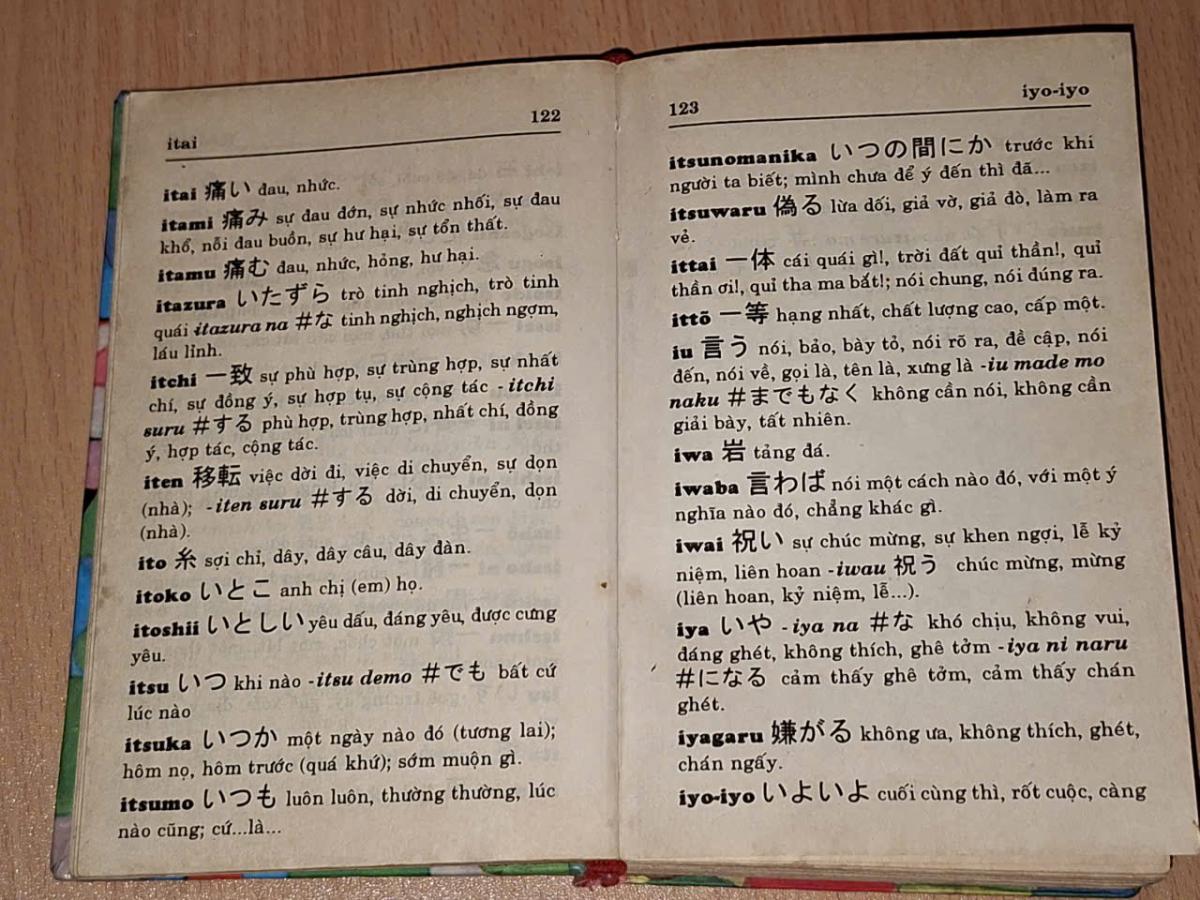 itai
122
itai 痛い đau, nhức.
itami 痛み sự đau đớn, sự nhức nhối, sự đau
khổ, nỗi đau buồn, sự hư hại, sự tổn thất.
itamu 痛む đau, nhức, hỏng, hư hại.
itazura いたずら trò tinh nghịch, trò tinh
quái itazura na #な tinh nghịch, nghịch ngợm,
láu lỉnh.
itchi 一致 sự phù hợp, sự trùng hợp, sự nhất
chí, sự đồng ý, sự hợp tụ, sự cộng tác -itchi
suru #する phù hợp, trùng hợp, nhất chí, đồng
ý, hợp tác, cộng tác.
iten 移転 việc dời đi, việc di chuyển, sự dọn
(nhà); -iten suru #する dời, di chuyển, dọn
(nhà).
ito 糸 sợi chỉ, dây, dây câu, dây đàn.
itoko いとこ anh chị (em) họ.
itoshii いとしい yêu dấu, đáng yêu, được cưng
yêu.
itsu いつ khi nào -itsu demo #でも bất cứ
lúc nào
itsuka いつか một ngày nào đó (tương lai);
hôm nọ, hôm trước (quá khứ); sớm muộn gì.
itsumo いつも luôn luôn, thường thường, lúc
nào cũng; cứ...là...
123
iyo-iyo
itsunomanika いつの間にか trước khi
người ta biết; mình chưa để ý đến thì đã...
itsuwaru 偽る lừa dối, giả vờ, giả đò, làm ra
vẻ.
ittai 一体 cái quái gì!, trời đất quỉ thần!, quỉ
thần ơi!, quỉ tha ma bắt!; nói chung, nói đúng ra.
ittō 一等 hạng nhất, chất lượng cao, cấp một.
iu 言う nói, bảo, bày tỏ, nói rõ ra, đề cập, nói
đến, nói về, gọi là, tên là, xưng là -iu made mo
naku #までもなく không cần nói, không cần
giải bày, tất nhiên.
iwa 岩 tảng đá.
iwaba 言わば nói một cách nào đó, với một ý
nghĩa nào đó, chẳng khác gì.
iwai 祝い sự chúc mừng, sự khen ngợi, lễ kỷ
niệm, liên hoan -iwau 祝う chúc mừng, mừng
(liên hoan, kỷ niệm, lễ...).
iya いや -iya na #な khó chịu, không vui,
đáng ghét, không thích, ghê tởm -iya ni naru
#になる cảm thấy ghê tởm, cảm thấy chán
ghét.
iyagaru 嫌がる không ưa, không thích, ghét,
chán ngấy.
iyo-iyo いよいよ cuối cùng thì, rốt cuộc, càng